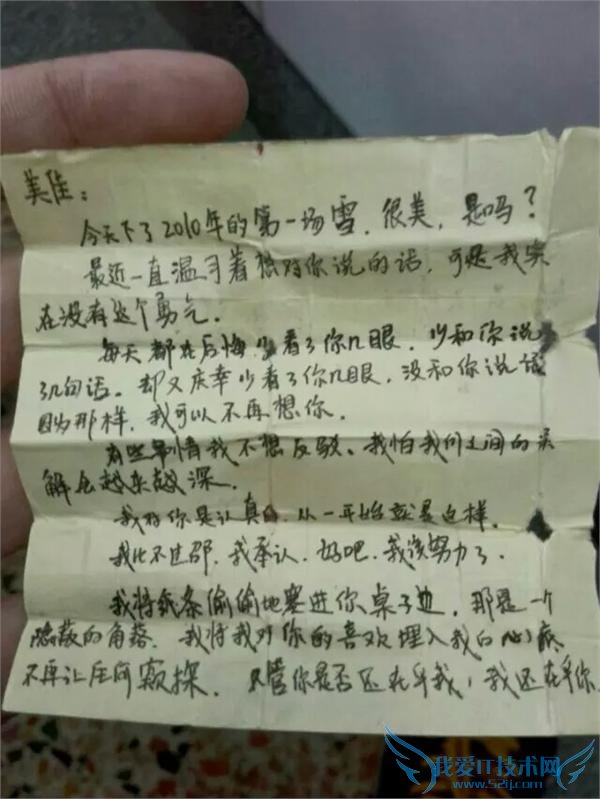 美佳：
今天下了2010年的第一场雪，很美，是吗？
最近一直温习着想对你说的话，可是我实
在没有这个勇气。
每天都在后悔少看了你几眼，少和你说
了几句话。却又庆幸少看了你几眼，没和你说话
因为那样，我可以不再想你。
有些事情我不想反驳、我怕我们之间的误
解会越来越深。
我对你是认真的，从一开始就是这样。
我比不过邵，我承认，好吧，我该努力了。
我将纸条偷偷地塞进你桌子边，那是一个
隐蔽的角落，我将我对你的喜欢埋入我的心底
不再让任何窥探。只管你是否还在乎我，我还在乎你
我爱IT技术网
www.52ij.com